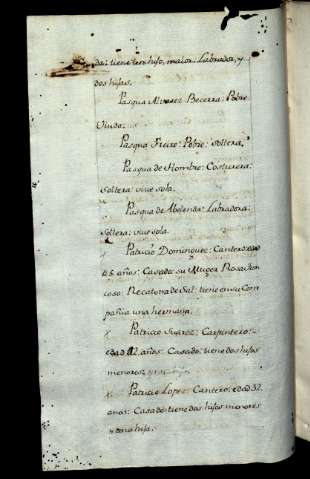 da: tiene un hijo, maior: Labrador, y
dos hijas.
Pasqua Alvarez Becerra: Pobre
Viuda.
Pasqua Freire: Pobre: Soltera,
Pasqua de Hombre: Costurera:
Soltera: vive sola.
Pasqua de Abelenda: Labradora:
Soltera: vive sola.
x Patricio Dominguez: Cantero: edad
45 años: Casado: su Muger Rosa
Recatona de Sal: tiene en su Com
pañia una hermana.
x Patricio Suarez: Carpintero:
edad 42 años: Casado: tiene dos hijos
menores,
x Patricio Lopez: Cantero: edad 32
años: Casado: tiene dos hijos menores
y una hija.